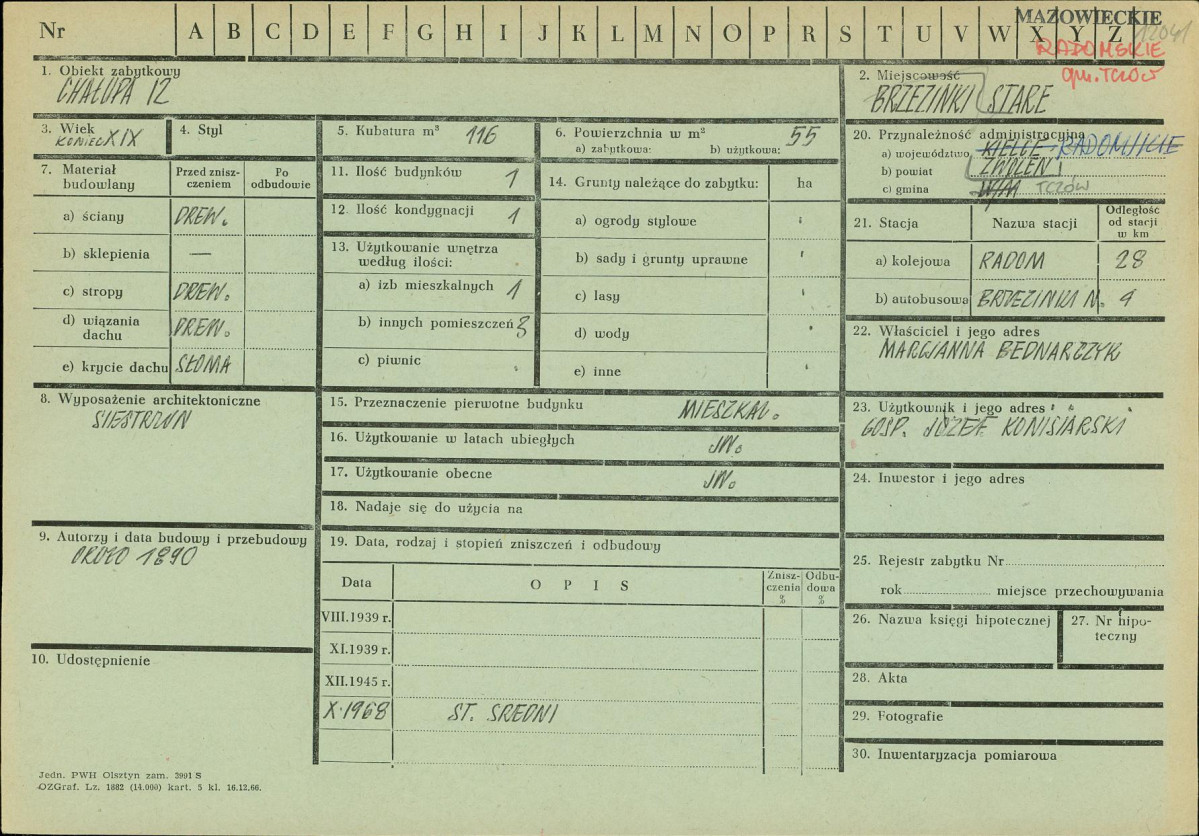 Nr A B C D E F G H I J K L M N O P R S T U V W X Y Z
MAZOWIECKIE
RADOMSKIE
gm. TCZÓW
1. Obiekt zabytkowy
CHAŁUPA 12
2. Miejscowość
BRZEZINKI STARE
3. Wiek
KONIEC XIX
4. Styl
5. Kubatura m³ 116
6. Powierzchnia w m² 55
a) zabytkowa: b) użytkowa:
20. Przynależność administracyjna
a) województwo KIELCE RADOMSKIE
b) powiat ZWOLEŃ
c) gmina W/M TCZÓW
7. Materiał budowlany
Przed zniszczeniem
Po odbudowie
a) ściany DREW.
b) sklepienia —
c) stropy DREW.
d) wiązania dachu DREW.
e) krycie dachu SŁOMA
11. Ilość budynków 1
12. Ilość kondygnacji 1
13. Użytkowanie wnętrza
według ilości:
a) izb mieszkalnych 1
b) innych pomieszczeń 3
c) piwnic
14. Grunty należące do zabytku: ha
a) ogrody stylowe
b) sady i grunty uprawne
c) lasy
d) wody
e) inne
21. Stacja Nazwa stacji Odległość od stacji w km
a) kolejowa RADOM 28
b) autobusowa BRZEZINKI N. 4
22. Właściciel i jego adres
MARCJANNA BEDNARCZYK
8. Wyposażenie architektoniczne
SIESTRZAN
15. Przeznaczenie pierwotne budynku MIESZKAL.
16. Użytkowanie w latach ubiegłych JW.
17. Użytkowanie obecne JW.
18. Nadaje się do użycia na
23. Użytkownik i jego adres
GOSP. JÓZEF KONISIARSKI
24. Inwestor i jego adres
9. Autorzy i data budowy i przebudowy
OKOŁO 1890
19. Data, rodzaj i stopień zniszczeń i odbudowy
Data OPIS Zniszczenia % Odbudowa %
VIII.1939 r.
XI.1939 r.
XII.1945 r.
X.1968 ST. ŚREDNI
25. Rejestr zabytku Nr
rok miejsce przechowywania
26. Nazwa księgi hipotecznej
27. Nr hipoteczny
10. Udostępnienie
28. Akta
29. Fotografie
30. Inwentaryzacja pomiarowa
Jedn. PWH Olsztyn zam. 3991 S
OZGraf. Lz. 1882 (14.000) kart. 5 kl. 16.12.66.